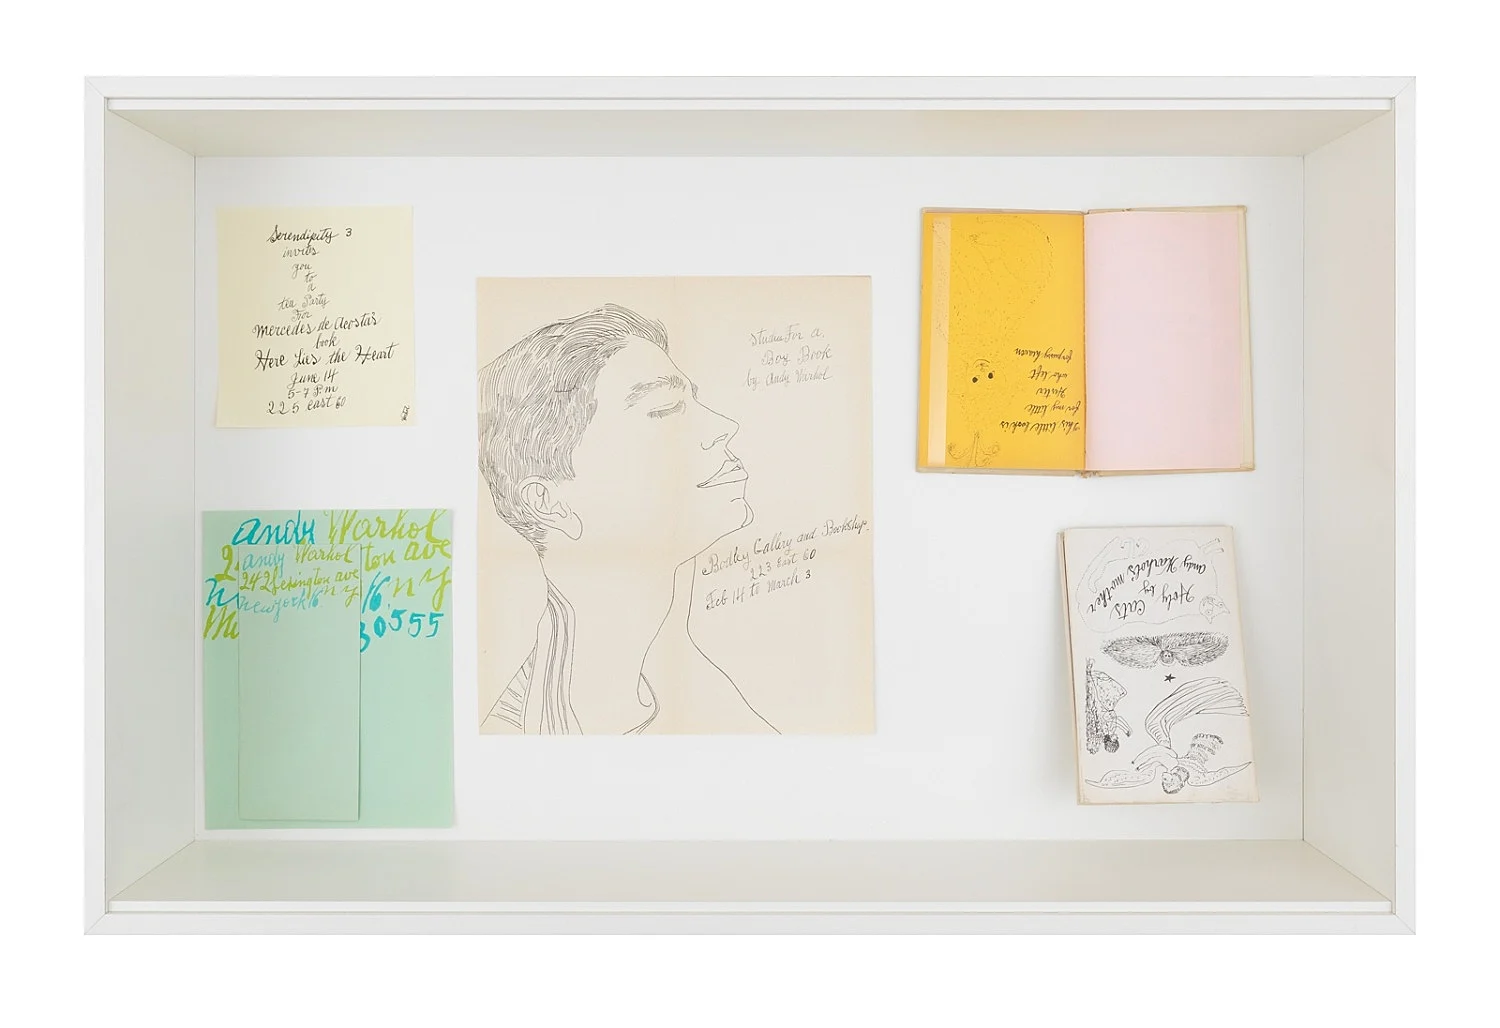 Serendipity 3
invites
you
to
a
tea Party
For
Mercedes de Acosta's
book
Here Lies the Heart
June 14
5-7 P.m
225 east 60
andy Warhol
ton ave
16 ny
30555
andy Warhol
242 Lexington ave
New york 16 ny
Studies For a
Boy Book
by Andy Warhol
Bodley Gallery and Bookshop
223 East 60
Feb 14 to March 3
This little book is
for my little
Hester
who left
for pussy heaven
Holy Cats
by
andy Warhol's mother